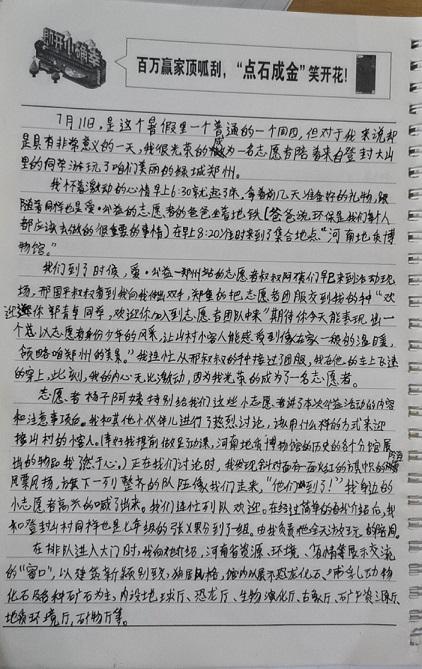 即开小确幸
百万赢家顶呱刮，“点石成金”笑开花！
7月11日，是这个暑假里一个普通的一个周四，但对于我来说却
是具有非常意义的一天，我很光荣的成为一名志愿者陪着来自登封大山
里的同学游玩了咱们美丽的绿城郑州。
我怀着激动的心情早上6:30就起了床，拿着前几天准备好的礼物，跟
随着同样也是爱·公益的志愿者的爸爸坐着地铁（爸爸说环保是我们每个人
都应该去做的很重要的事情）在早上8:20准时来到了集合地点“河南地质博
物馆。”
我们到了时候，爱·公益—郑州站的志愿者叔叔阿姨们早已来到活动现
场，邢国平叔叔看到我向我伸出双手，郑重的把志愿者团服交到我的手中“欢
迎你郭青卓同学，欢迎你加入到志愿者团队中来”期待你今天能表现出一
个志愿者身份少年的风采，让山村小客人能感受到像在家一般的温暖，
领略咱郑州的美景。”我连忙从邢叔叔的手中接过团服，我在他的手上飞速
的穿上，此刻，我的内心无比激动，因为我光荣的成为了一名志愿者。
志愿者柚子阿姨特别给我们这些小志愿者讲了本次公益活动的内容
和注意事项。我和其他小伙伴儿进行了热烈讨论，该用什么样的方式来迎
接山村的小客人。（幸好我提前做足功课，河南地质博物馆的历史的各个分馆展
出的物品我了然于心。）正在我们讨论时，我发现斜对面有一面火红的旗帜的
风雾风扬，旗下一列整齐的队伍像我们走来，“他们来到了！”我身边的
小志愿者高兴的喊了出来。我们连忙列队欢迎。在经过简单的自我介绍后，我
和登封山村同样也是七年级的张义果分到了一组。由我负责他全天游玩的陪同。
在排队进入大门时，我向他介绍，河南省资源、环境、旅情等展示交流
的“窗口”，以建筑新颖别致，独居风格，馆内以展示恐龙化石、哺乳动物
化石及各种矿石为主，内设地球厅、恐龙厅、生物演化厅、古象厅、矿产资源厅、
地质环境厅，矿物厅等。